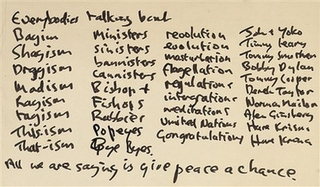 Everybodies talking bout
Bagism
Shagism
Draggism
Madism
Ragism
Tagism
This ism
That-ism
Ministers
sinisters
bannisters
Cannisters
Bishop +
Fishops
Rabbier
Popeyes
Bye Byes.
revolution
evolution
masturbation
flagellation
regulations
integrations
meditations
United Nations
Congratulations
John + Yoko
Timmy Leary
Tommy Smothers
Bobby Dylan
Tommy Cooper
Derek Taylor
Norman Mailer
Alen Ginsberg
Hare Krisna
Hare Krisna
All we are saying is give peace a chance.